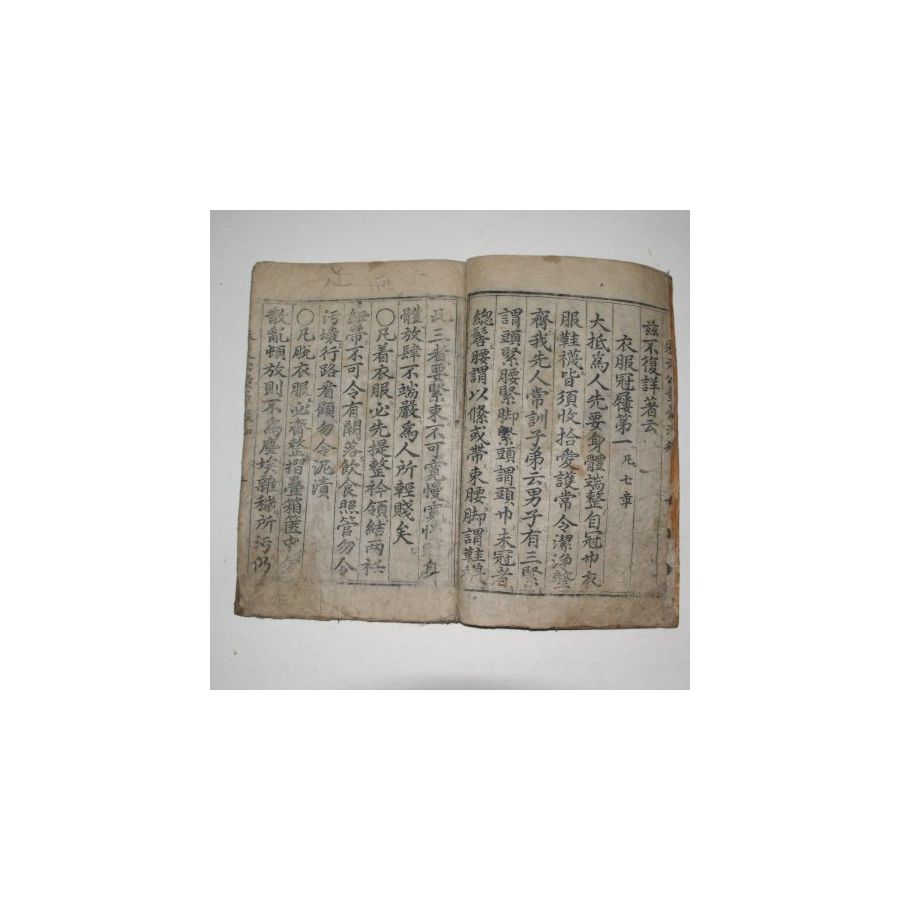 茲不復詳著云
衣服冠屨第一 凡七章
大抵爲人先要身體端整自冠巾衣
服鞋襪皆須收拾愛護常令潔淨整
齊我先人常訓子弟云男子有三緊
謂頭緊腰緊脚緊頭謂頭巾未冠者
總髻腰謂以絛或帶束腰脚謂鞋襪
此三者要緊束不可寬慢寬慢則身
體放肆不端嚴爲人所輕賤矣
○凡着衣服必先提整衿領結兩衽
紐帶不可令有闕落飮食照管勿令
汚壞行路看顧勿令泥漬
○凡脫衣服必齊整摺疊箱篋中勿
散亂頓放則不爲塵埃雜穢所汚仍